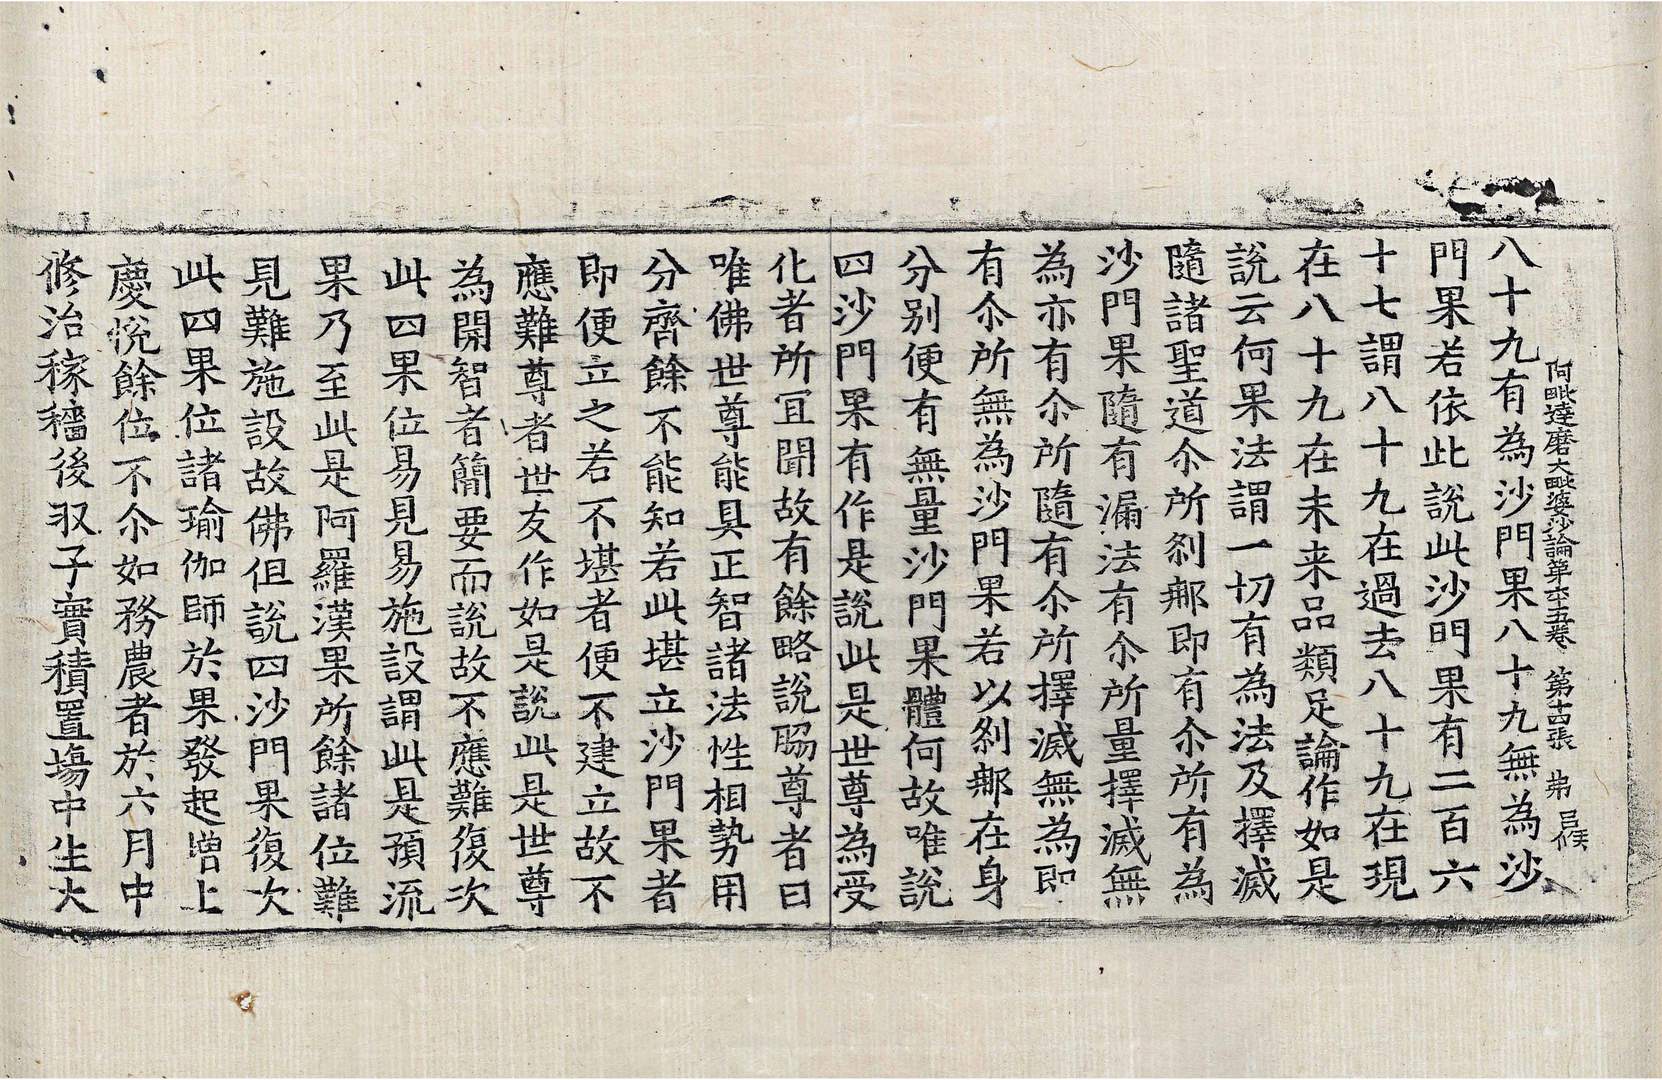 阿毗達磨大毗婆沙論第六十五卷 第十古張 弟
八十九有為沙門果八十九無為沙
門果若依此說此沙門果有二百六
十七謂八十九在過去八十九在現
在八十九在未来品類足論作如是
說云何果法謂一切有為法及擇滅
隨諸聖道尒所剎郍即有尒所有為
沙門果隨有漏法有尒所量擇滅無
為亦有尒所隨有尒所擇滅無為即
有尒所無為沙門果若以剎郍在身
分別便有無量沙門果體何故唯說
四沙門果有作是說此是世尊為受
化者所冝聞故有餘略說脇尊者曰
唯佛世尊能具正智諸法性相勢用
分齊餘不能知若此堪立沙門果者
即便立之若不堪者便不建立故不
應難尊者世友作如是說此是世尊
為開智者簡要而說故不應難復次
此四果位易見易施設謂此是預流
果乃至此是阿羅漢果所餘諸位難
見難施設故佛但說四沙門果復次
此四果位諸瑜伽師於果發起增上
慶悅餘位不尒如務農者於六月中
修治稼穡後収子實積置場中生大